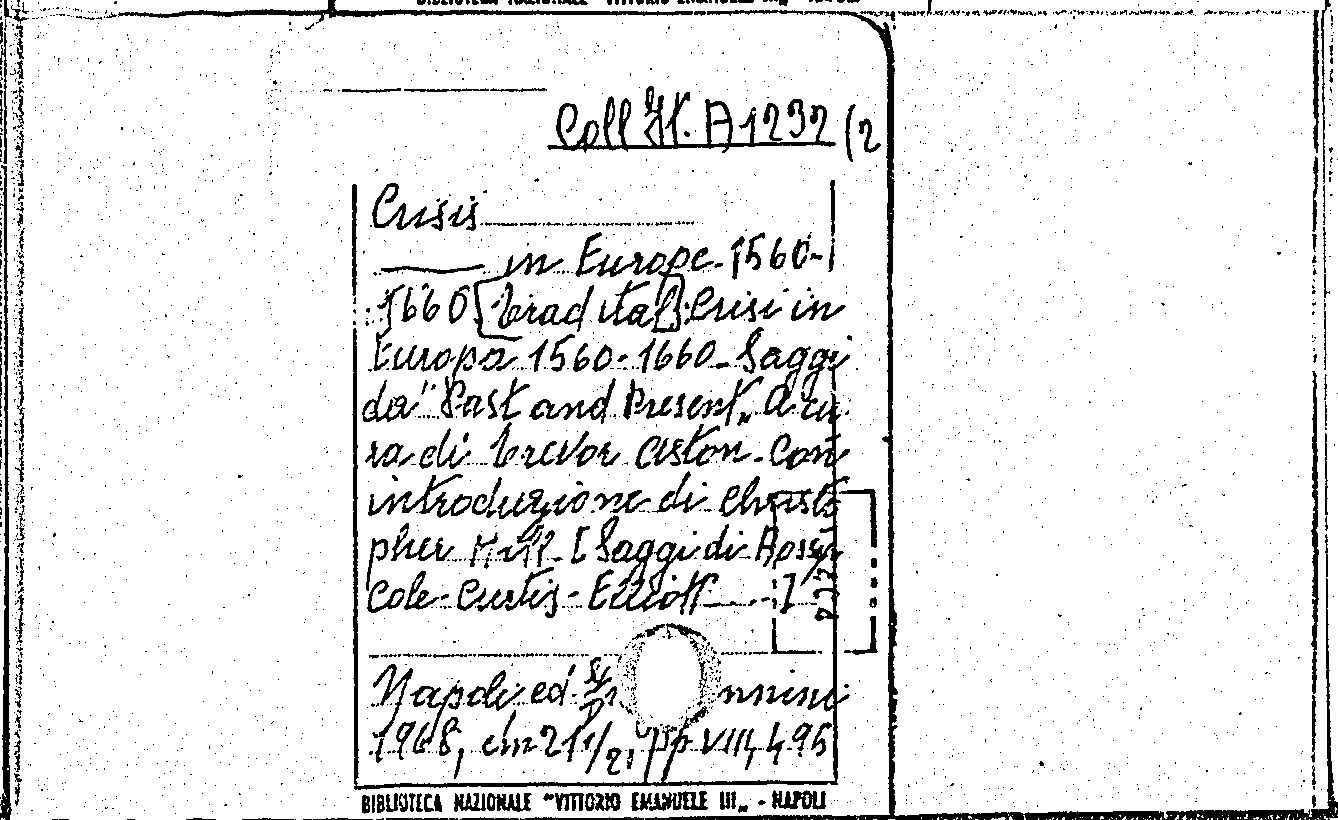 BIBLIOTECA NAZIONALE "VITTORIO EMANUELE III„ - NAPOLI
Coll It. A 1232 (2
Crisis
in Europe. 1560-
1660 [Trad ital]: Crisi in
Europa 1560-1660 - Saggi
da "Past and Present„ A cu
ra di Trevor Aston. Con
introduzione di Christo
pher Hill [Saggi di
Cole-Curtis-Elliott ---]
Napoli ed nnini
1968, cm 21 1/2, pp VIII, 495
BIBLIOTECA NAZIONALE "VITTORIO EMANUELE III„ - NAPOLI